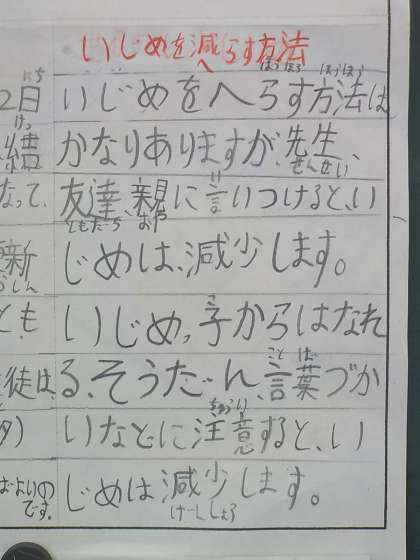 いじめを減らす方法
いじめをへらす方法は
かなりありますが、先生、
友達、親に言いつけると、い
じめは、減少します。
いじめっ子からはなれ
る、そうだん、言葉づか
いなどに注意すると、い
じめは減少します。
2日
結
なって、
新
とも
徒は、
よいの
です。